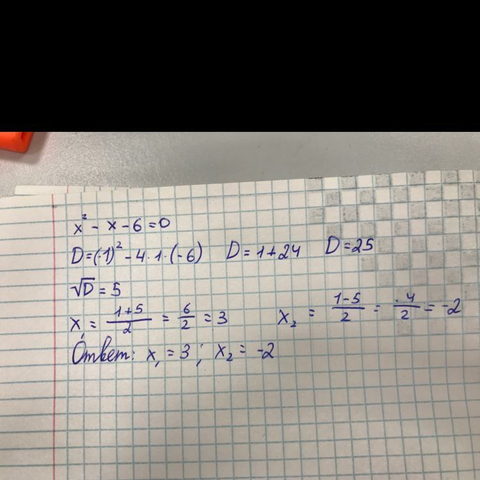 x² - x - 6 = 0
D = (-1)² - 4 · 1 · (-6) D = 1 + 24 D = 25
√D = 5
x₁ = (1+5)/2 = 6/2 = 3 x₂ = (1-5)/2 = -4/2 = -2
Ответ: x₁ = 3; x₂ = -2